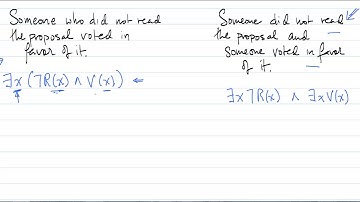 Someone who did not read
the proposal voted in
favor of it.
∃x (¬R(x) ∧ V(x)) ⇐
Someone did not read
the proposal and
someone voted in favor
of it.
∃x ¬R(x) ∧ ∃x V(x)